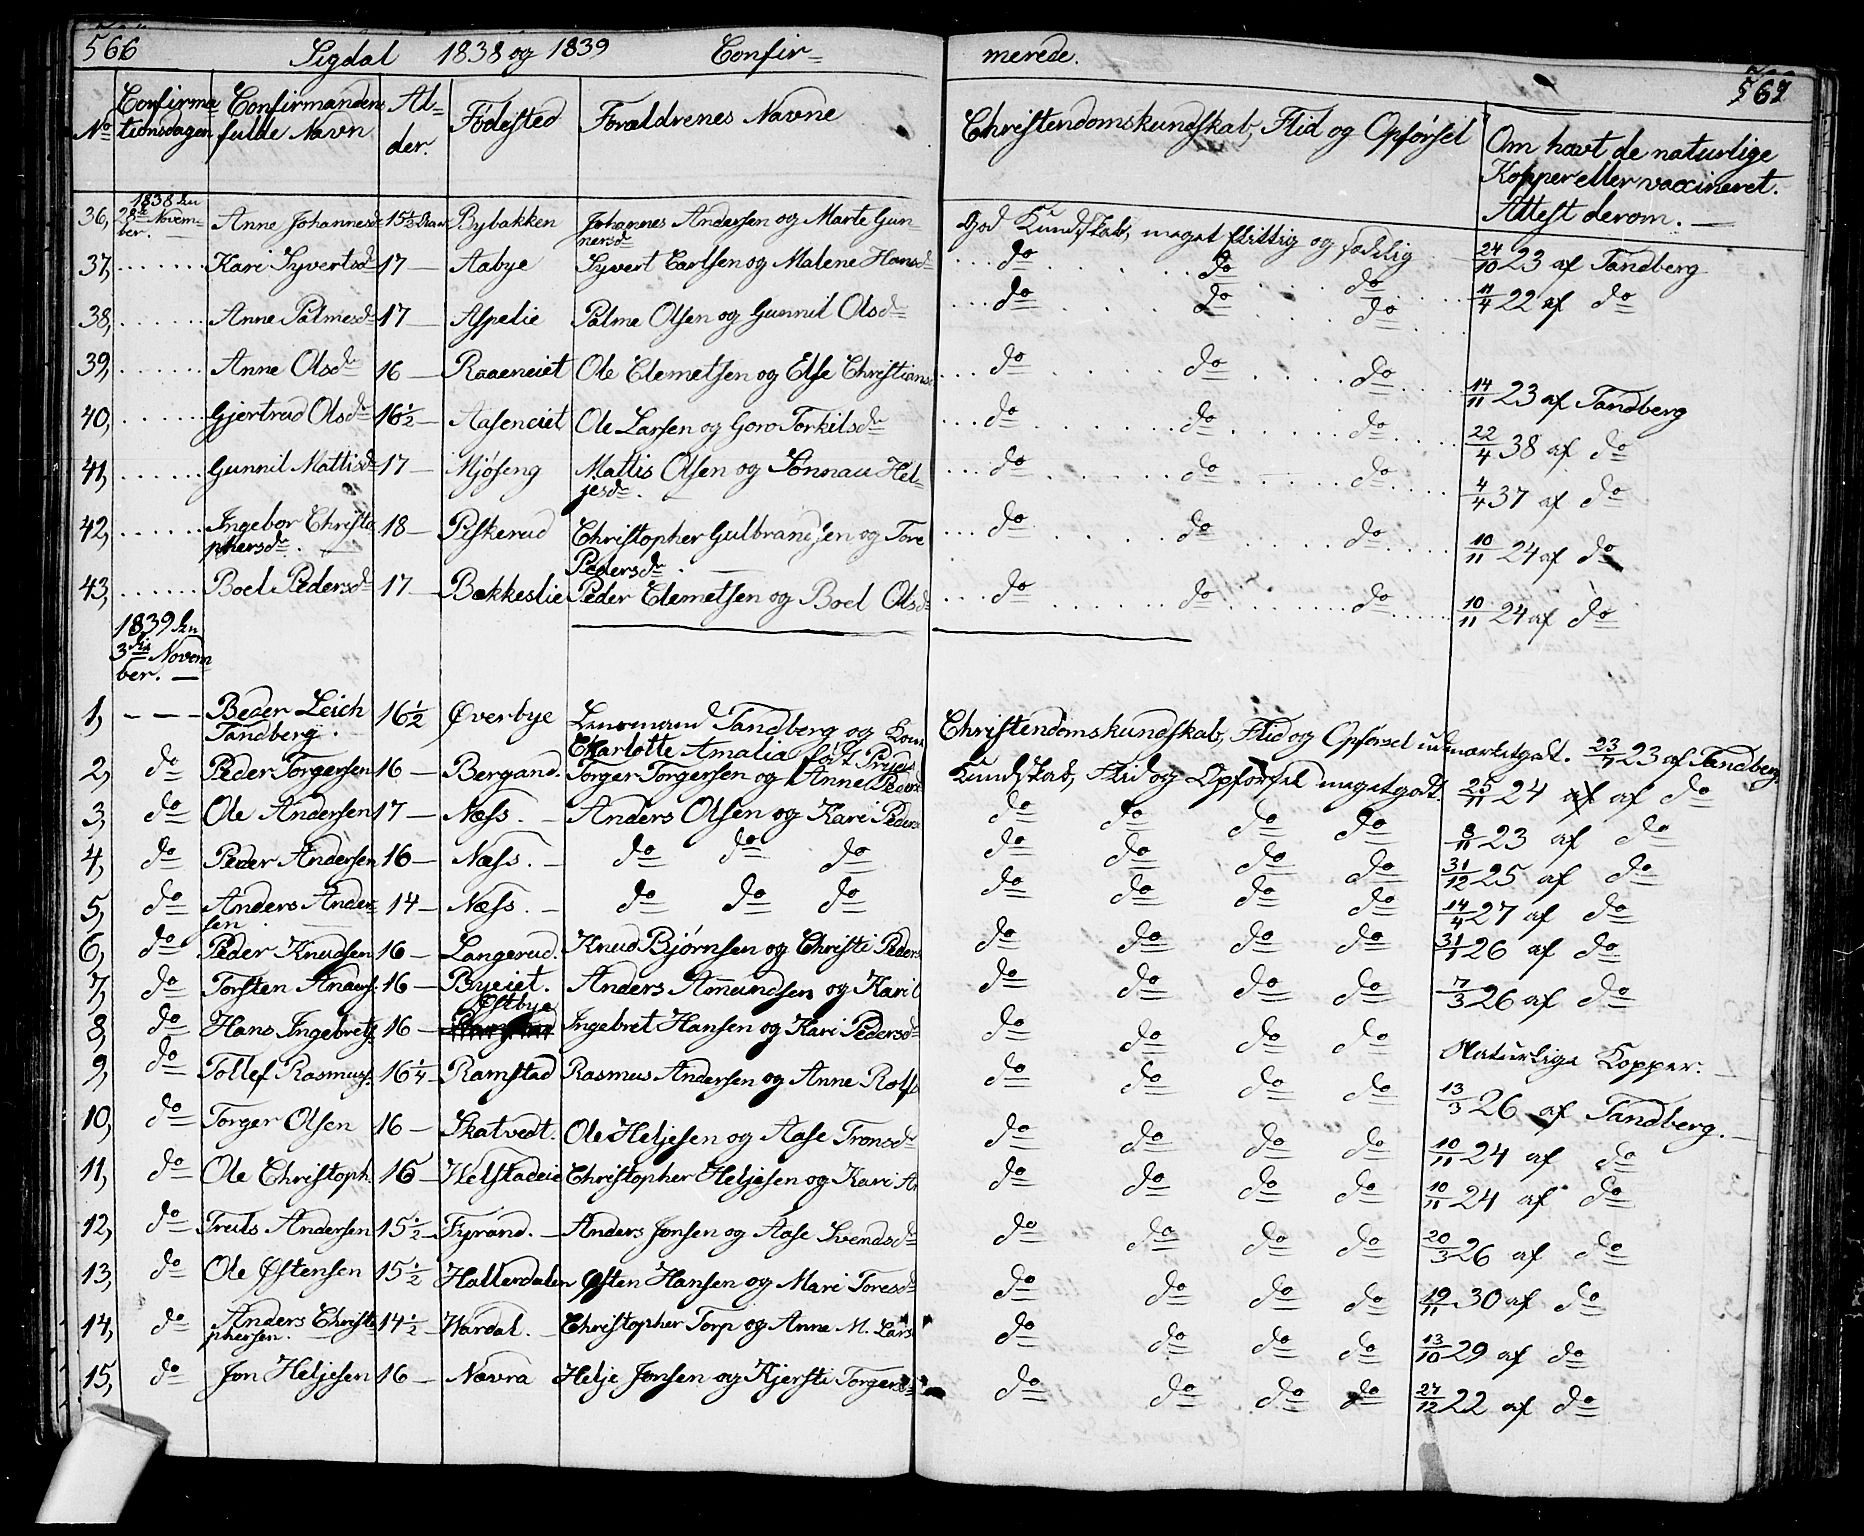 566 Sigdal 1838 og 1839 Confir= merede. 567
No Confirma tionsdagen Confirmandens fulde Navn Al= der. Födested Forældrenes Navne Christendomskundskab, Flid og Opförsel Om havt de naturlige Kopper eller vaccineret. Attest derom. —
36, 1838 den 28de Novem= ber. Anne Johannesd 15½ Aar Bybakken Johannes Andersen og Marte Gun= nersdr God Kundskab, meget flittig og sædelig 24/10 23 af Tandberg
37, Kari Syvertsd 17 — Aabye Syvert Carlsen og Malene Hansdr do do do 11/4 22 af do
38, Anne Palmesd 17 — Aspelie Palme Olsen og Gunnil Olsdr do do do
39, Anne Olsdr 16 — Raaeneiet Ole Clemetsen og Else Christians do do do 14/11 23 af Tandberg
40, Gjertrud Olsdr 16½ — Aaseneiet Ole Larsen og Goro Torkilsdr do do do 22/4 38 af do
41, Gunnil Mattisdr 17 — Mjöseng Mattis Olsen og Sönnau Hel= jesdr. do do do 4/4 37 af do
42, Ingebor Christo phersdr. 18 — Piskerud Christopher Gulbrandsen og Tore Pedersdr. — do do do 10/11 24 af do
43, Boel Pedersdr 17 — Bækkeslie Peder Clemetsen og Boel Olsdr do do do 10/11 24 af do
1839 den
3die Novem
ber. —
1, - - - Beder Leich Tandberg. 16½ Øverbye Lensmand Tandberg og Kone Charlotte Amalia födt Pryds Christendomskundskab, Flid og Opförsel udmærketgodt. 23/7 23 af Tandberg
2, do Peder Torgersen 16 — Bergand. Torger Torgersen og Anne Peders Kundskab, Flid og Opförsel megetgodt. 25/11 24 af af do
3, do Ole Andersen 17 — Næss. — Anders Olsen og Kari Peders do do do do 8/11 23 af do
4, do Peder Andersen 16 — Næss. — do do do do do do do 31/12 25 af do
5, do Anders Ander= sen 14 — Næss. — do do do do do do do 14/4 27 af do
6, do Peder Knudsen 16 — Langerud. Knud Björnsen og Christi Peders do do do do 31/1 26 af do
7, do Torsten Anders: 16 — Byeiet. Anders Amundsen og Kari do do do do 7/3 26 af do
8, do Hans Ingebrets 16 — Östbye Ingebret Hansen og Kari Pedersdr do do do do Naturlige Kopper. —
9, do Tollef Rasmuss. 16¼ — Ramstad Rasmus Andersen og Anne Rolfs do do do do 13/3 26 af Tandberg. —
10, do Torger Olsen 16 — Skatvedt. Ole Heljesen og Aase Tronsdr do do do do 10/11 24 af do
11, do Ole Christoph. 16 — Helstadeie Christopher Heljesen og Kari An do do do do 10/11 24 af do
12, do Truls Andersen 15½ — Fyrand. — Anders Jonsen og Aase Svendsdr do do do do 20/3 26 af do
13, do Ole Östensen 15½ Hallerdalen Østen Hansen og Mari Toresdr do do do do 19/11 30 af do
14, do Anders Christo phersen. 14½ — Wardal. — Christopher Torp og Anne M. Lars do do do do 13/10 29 af do
15, do Jon Heljesen 16 — Nævra Helje Jonsen og Kjersti Torgers do do do do 27/12 22 af do